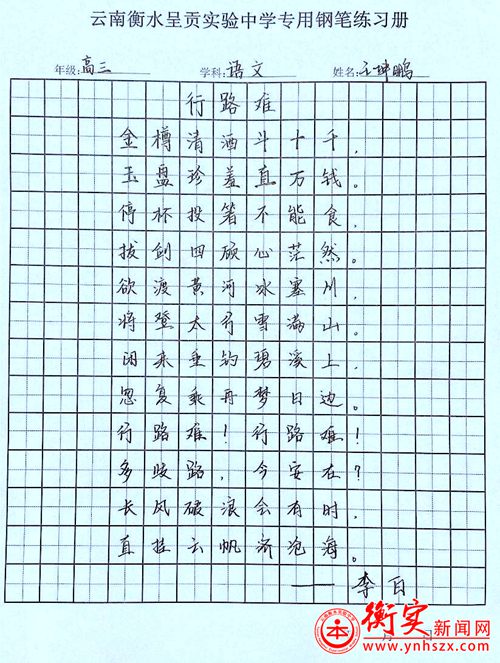 云南衡水呈贡实验中学专用钢笔练习册
年级:高三 学科:语文 姓名:王坤鹏
行路难
金樽清酒斗十千,
玉盘珍羞直万钱。
停杯投箸不能食,
拔剑四顾心茫然。
欲渡黄河冰塞川,
将登太行雪满山。
闲来垂钓碧溪上,
忽复乘舟梦日边。
行路难!行路难!
多歧路,今安在?
长风破浪会有时,
直挂云帆济沧海。
——李白
月 日
衡实新闻网
www.ynhszx.com